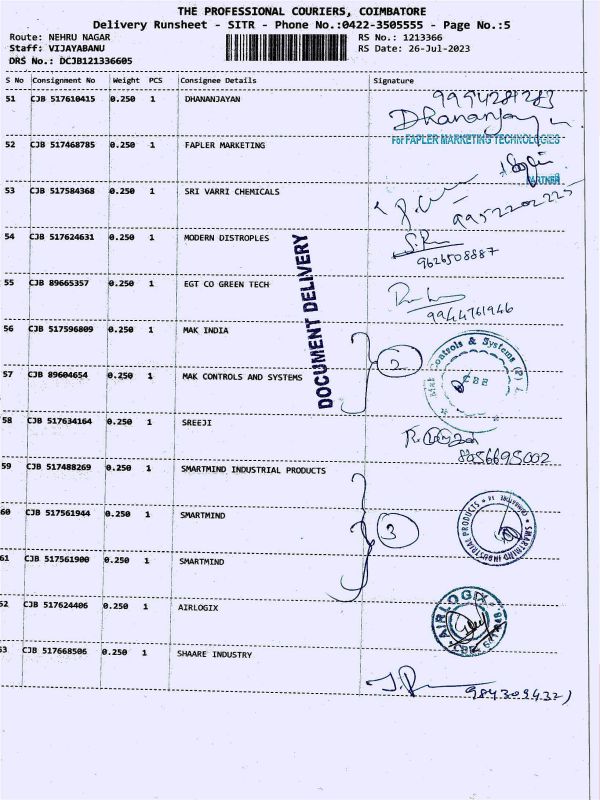 THE PROFESSIONAL COURIERS, COIMBATORE
Delivery Runsheet - SITR - Phone No.:0422-3505555 - Page No.:5
Route: NEHRU NAGAR RS No.: 1213366
Staff: VIJAYABANU RS Date: 26-Jul-2023
DRS No.: DCJB121336605
S No Consignment No Weight PCS Consignee Details Signature
51 CJB 517610415 0.250 1 DHANANJAYAN 9994281283
Dhananjayan
52 CJB 517468785 0.250 1 FAPLER MARKETING For FAPLER MARKETING TECHNOLOGIES
PARTNER
53 CJB 517584368 0.250 1 SRI VARRI CHEMICALS 9952202225
54 CJB 517624631 0.250 1 MODERN DISTROPLES
9626508887
55 CJB 89665357 0.250 1 EGT CO GREEN TECH
9944761946
DOCUMENT DELIVERY
56 CJB 517596809 0.250 1 MAK INDIA
2
Mak Controls & Systems (P) L
CBE
57 CJB 89604654 0.250 1 MAK CONTROLS AND SYSTEMS
58 CJB 517634164 0.250 1 SREEJI
8056695002
59 CJB 517488269 0.250 1 SMARTMIND INDUSTRIAL PRODUCTS
60 CJB 517561944 0.250 1 SMARTMIND
3
SMARTMIND INDUSTRIAL PRODUCTS
61 CJB 517561900 0.250 1 SMARTMIND
52 CJB 517624406 0.250 1 AIRLOGIX
AIRLOGIX
53 CJB 517668506 0.250 1 SHAARE INDUSTRY
9843094321